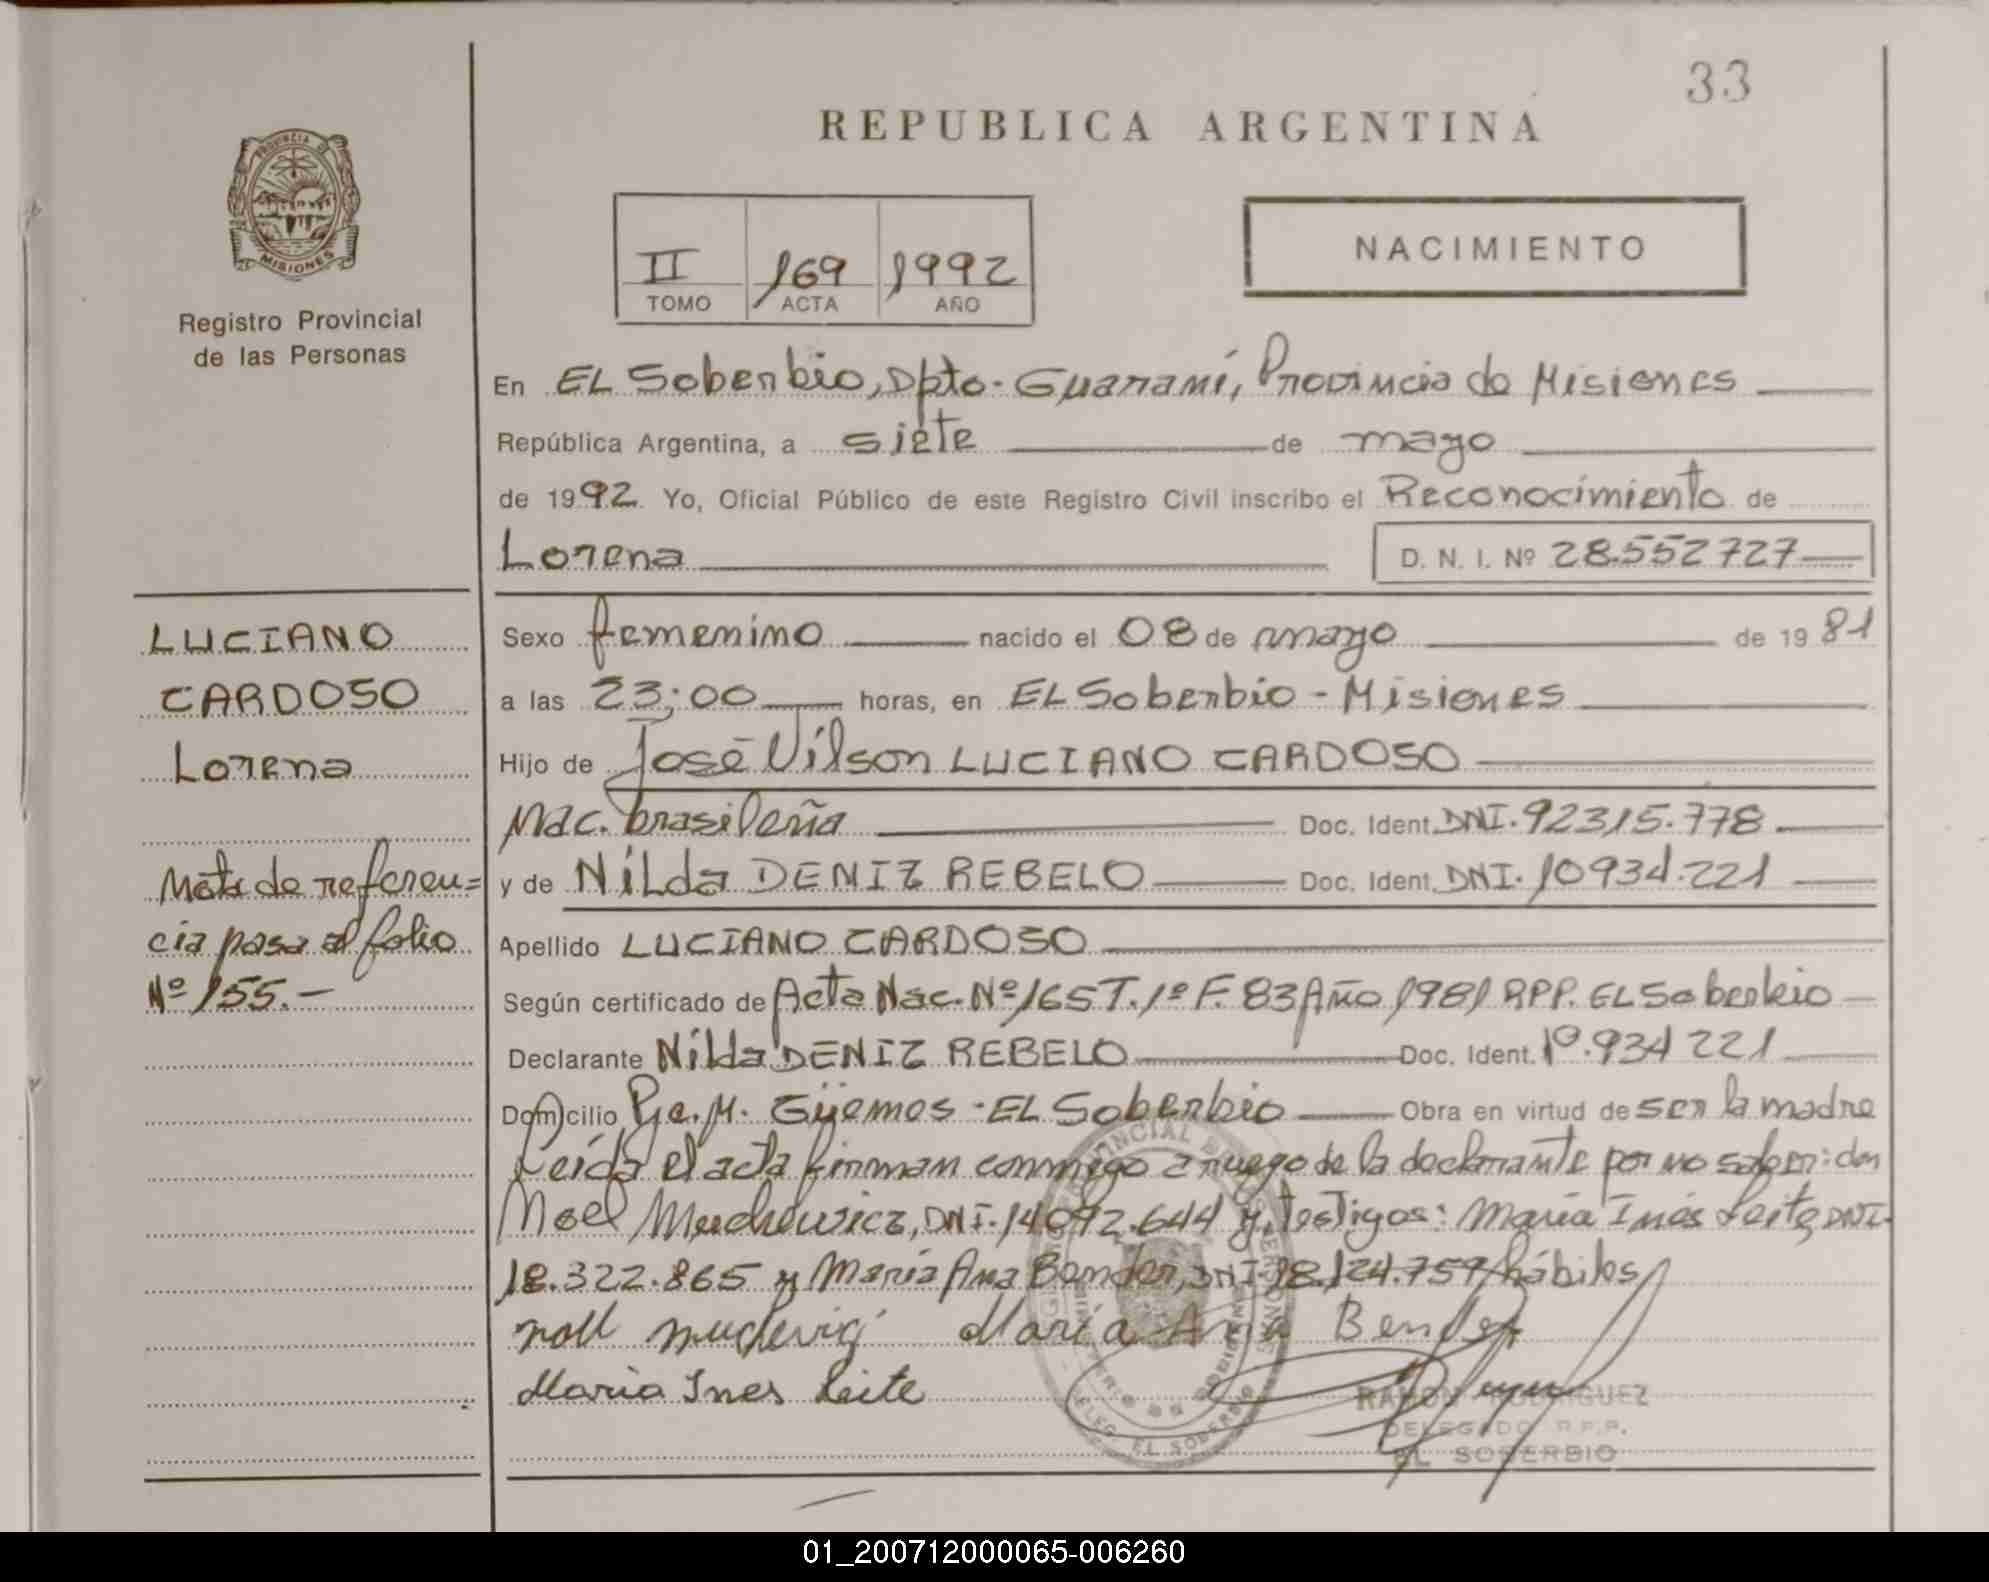 33
REPUBLICA ARGENTINA
PROVINCIA DE
MISIONES
Registro Provincial
de las Personas
II 169 1992
TOMO ACTA AÑO
NACIMIENTO
En EL Soberbio, Dpto. Guaraní, Provincia de Misiones
República Argentina, a siete de mayo
de 1992. Yo, Oficial Público de este Registro Civil inscribo el Reconocimiento de
Lorena D. N. I. Nº 28.552727
LUCIANO
CARDOSO
Lorena
Nota de referen=
cia pasa al folio
Nº 155.-
Sexo femenino nacido el 08 de mayo de 19 81
a las 23:00 horas, en EL Soberbio - Misiones
Hijo de José Vilson LUCIANO CARDOSO
Nac. brasileña Doc. Ident. DNI. 92315.778
y de Nilda DENIZ REBELO Doc. Ident. DNI. 10934.221
Apellido LUCIANO CARDOSO
Según certificado de Acta Nac. Nº 165 T. 1º F. 83 Año 1981 RPP. EL Soberbio
Declarante Nilda DENIZ REBELO Doc. Ident. 10.934 221
Domicilio Pje. M. Güemes - EL Soberbio Obra en virtud de ser la madre
Leída el acta firman conmigo a ruego de la declarante por no saber: don
Noel DNI. 14.092.644 y testigos: María Inés Leite, DNI.
18.322.865 y María Ana Bender, DNI. 18.124.759 hábiles
María Ana Bender
Maria Ines Leite
RAMON RODRIGUEZ
DELEGADO R.P.P.
EL SOBERBIO
DELEG. EL SOBERBIO
01_200712000065-006260